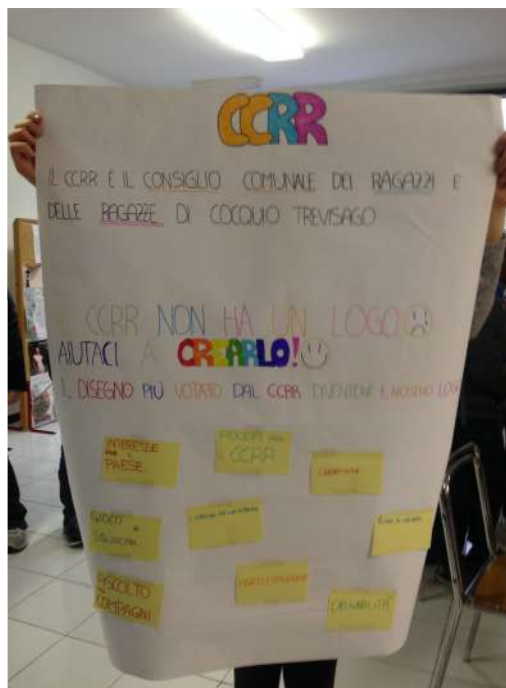 CCRR
IL CCRR È IL CONSIGLIO COMUNALE DEI RAGAZZI E
DELLE RAGAZZE DI COCQUIO TREVISAGO
IL CCRR NON HA UN LOGO
AIUTACI A CREARLO!
IL DISEGNO PIÙ VOTATO DAL CCRR DIVENTERÀ IL NOSTRO LOGO
INTERESSE
PAESE
IL CCRR
CREATIVITÀ
GIOCO di
SQUADRA
ASCOLTO
COMPAGNI
PARTECIPAZIONE